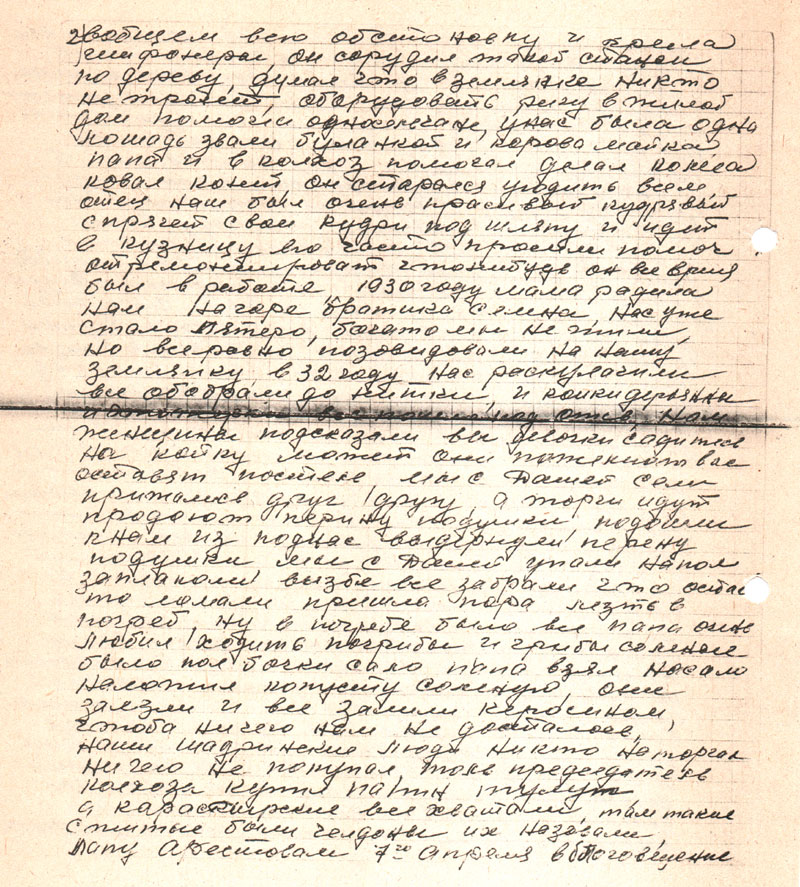 2) вобщем всю обстоновку и крела
шифонеры, он сорудил такой станок
по дереву, думал что в землянке никто
не тронет, оборудовать ригу в жилой
дом помогли односельчане, унас была одна
лошадь звали буланкой и корова майка
папа и в колхоз помогал делал колёса
ковал коней, он старался угодить всем,
отец наш был очень красивый кудрявый
спрячет свои кудри под шляпу и идёт
в кузницу его часто просили помоч
отремонтироват чтонибудь он все время
был в работе, 1930 году мама радила
нам братика Семёна, нас уже
стало пятеро, богато мы не жили,
но всеравно позовидовали на нашу
землянку, в 32 году нас раскулачили
все обобрали до нитки, и
все пошло под нам
женщины подсказали вы девочки садитесь
на койку может они пожелеют вас
оставят постель мы с Дашей сели
прижались друг другу, а торги идут
продают перину подушки, подошли
кнам из поднас выдернули перену
подушки мы с Дашей упали напол
заплакали, визбе все забрали что оста
то ломали пришла пора лезть в
погреб, ну в погребе было все папа очень
любил ходить погрибы и грибы соленые
было пол бочки сало папа взял насало
наложил копусту соленую, они
залезли и все залили керосином,
чтоба ничего нам не досталось,
наши шадринские люди никто на торгах
ничего не покупал толь председатель
колхоза купил папин тулуп
а все хватали, там такие
были челдоны их называли,
Папу Арестовали 7го апреля в Благовещение